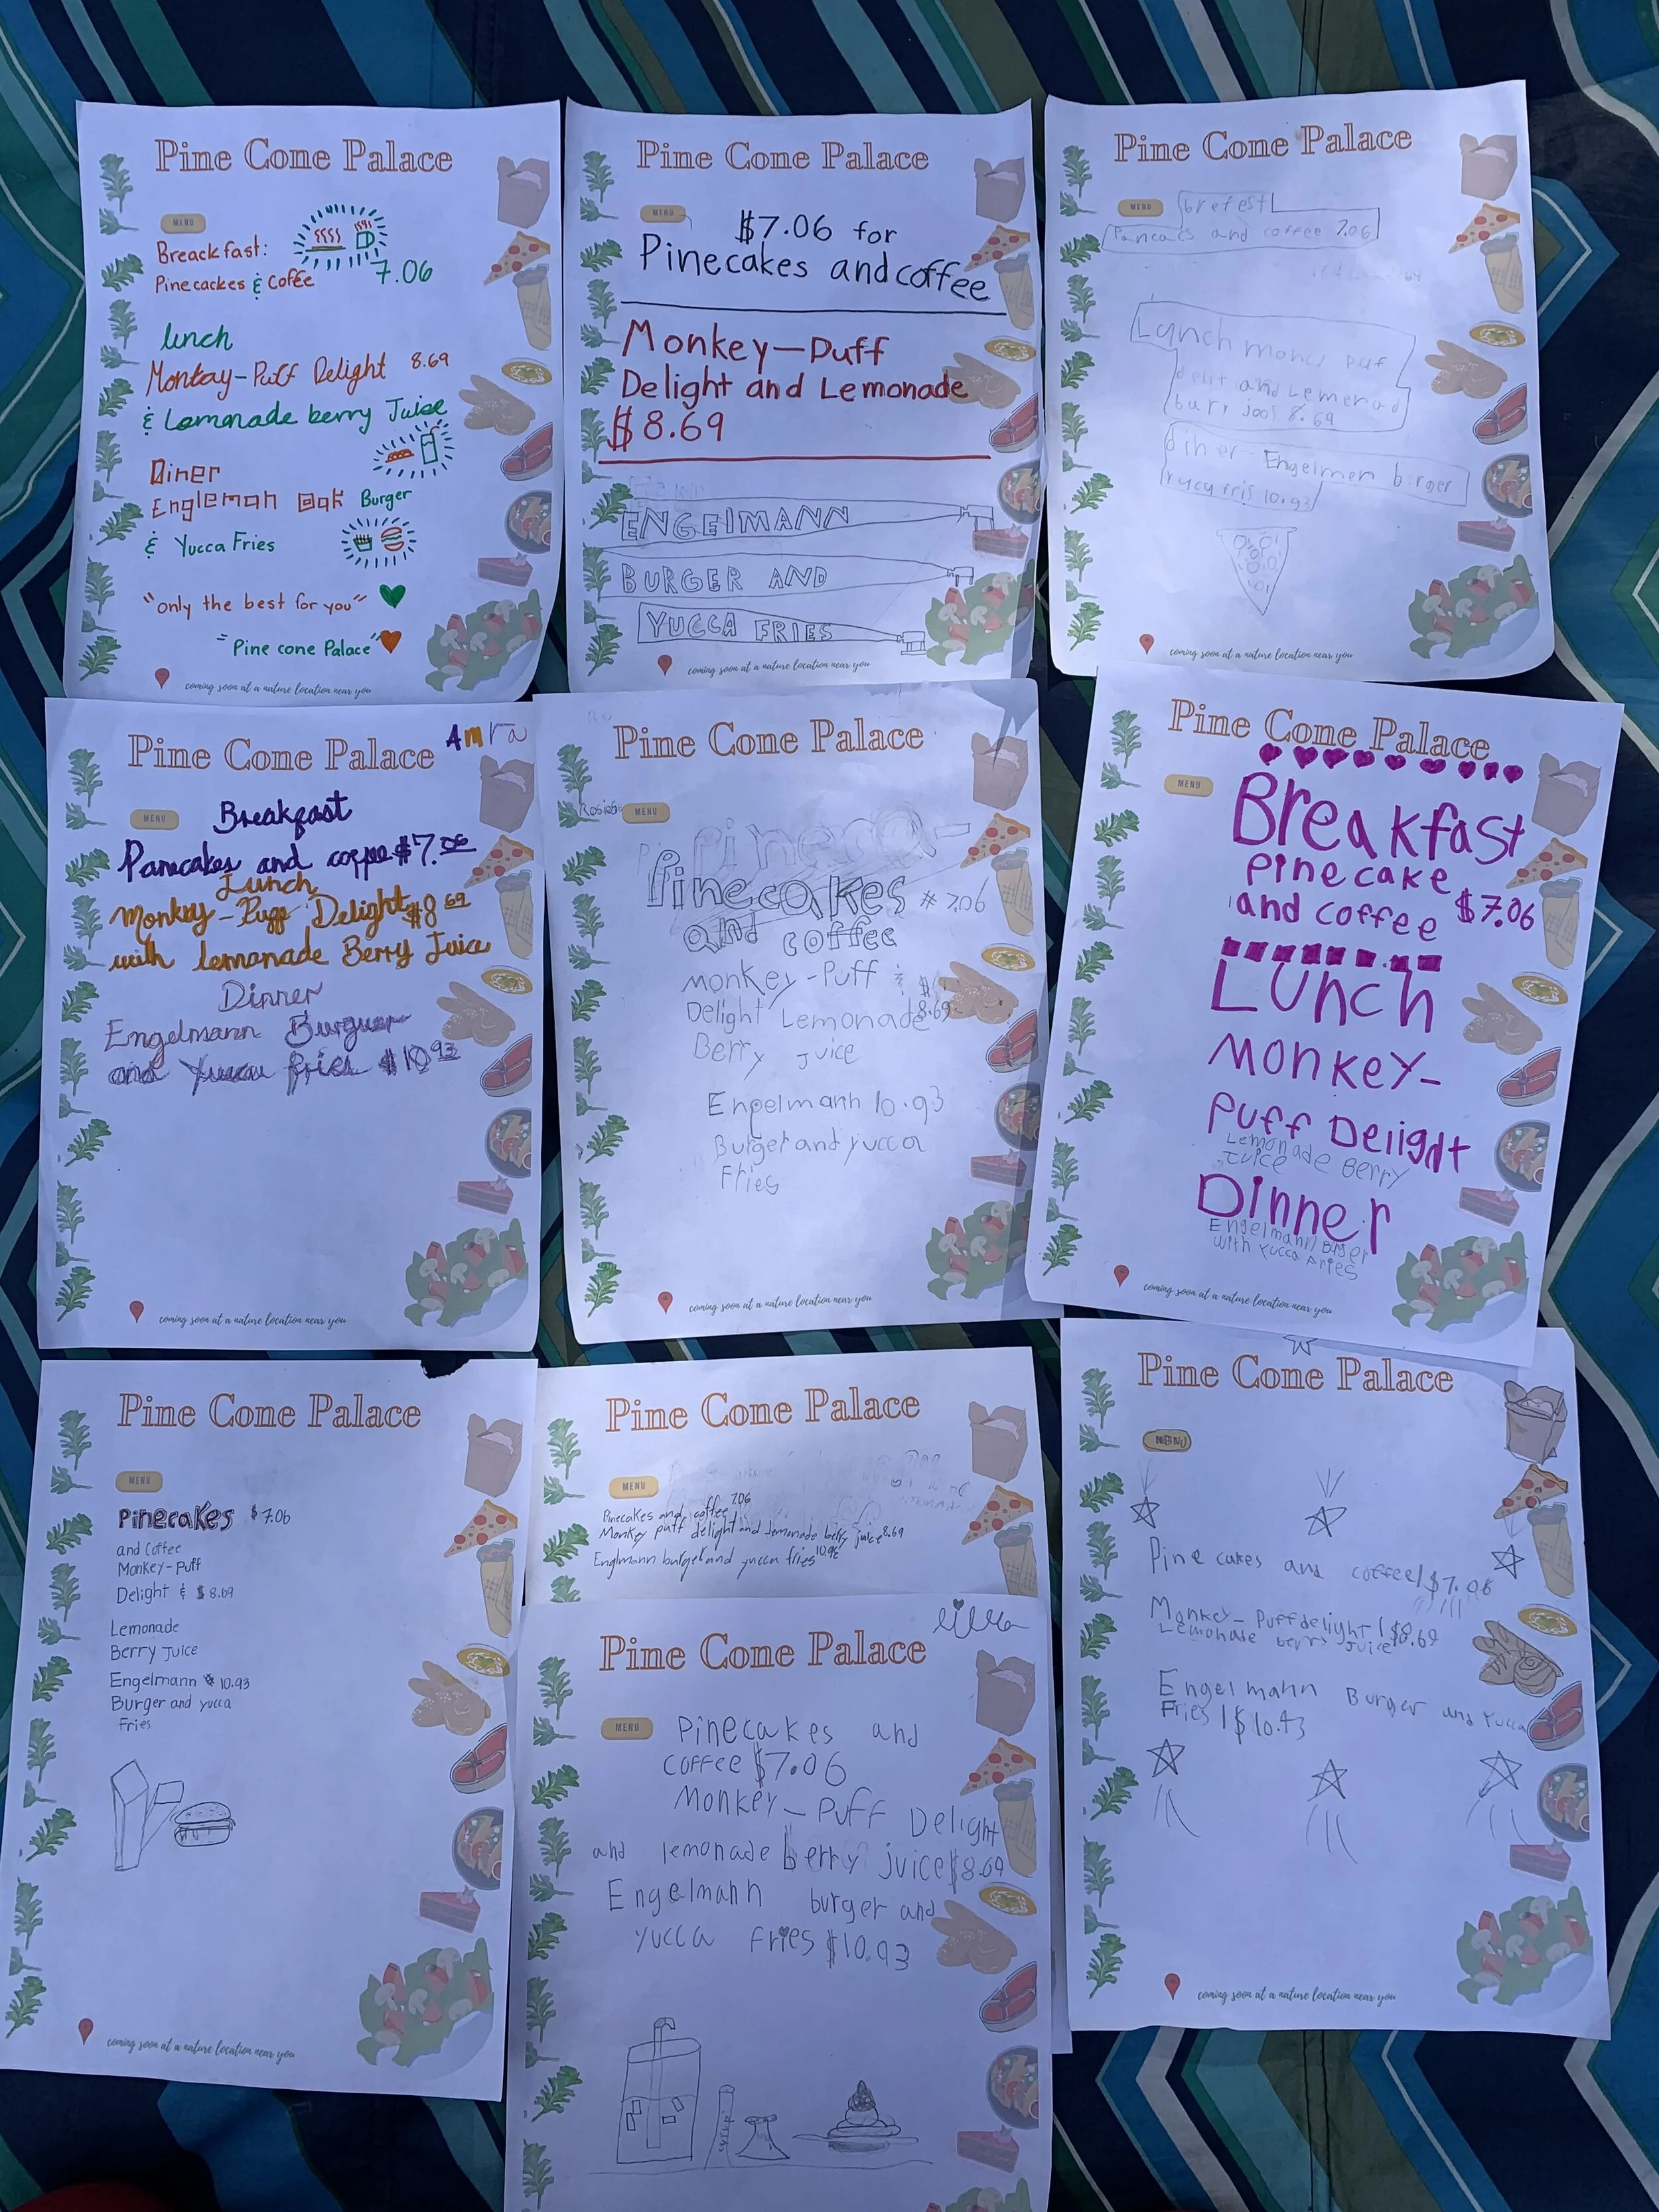 Pine Cone Palace
MENU
Breackfast:
Pinecackes & Coffee
7.06
lunch
Montay-Puff Delight 8.69
& Lemonade berry Juice
Diner
Engleman oak Burger
& Yucca Fries
"only the best for you"
"Pine cone Palace"
coming soon at a nature location near you
Pine Cone Palace
MENU
$7.06 for
Pinecakes and coffee
Monkey-Puff
Delight and Lemonade
$8.69
ENGElMANN
BURGER AND
YUCCA FRIES
coming soon at a nature location near you
Pine Cone Palace
MENU
brefest
Pancacs and coffee 7.06
Lunch puf
delit and Lemenad
bary joos 8.69
diner - Engelmen burger
yucy fris 10.93
coming soon at a nature location near you
Pine Cone Palace
Amra
MENU
Breakfast
Panecakes and coffee $7.06
Lunch
Monkey-Puff Delight $8.69
with lemonade Berry Juice
Dinner
Engelmann Burguer
and Yucca fries $10.93
coming soon at a nature location near you
Pine Cone Palace
MENU
Pineca-
Pinecakes 7.06
and coffee
monkey-Puff &
Delight Lemonade 8.69
Berry Juice
Engelmann 10.93
Burger and yucca
Fries
coming soon at a nature location near you
Pine Cone Palace
MENU
Breakfast
Pinecake
and coffee $7.06
Lunch
Monkey-
Puff Delight
Lemonade Berry
Juice
Dinner
Engelmann Burger
with Yucca Fries
coming soon at a nature location near you
Pine Cone Palace
MENU
Pinecakes $7.06
and Coffee
Monkey-Puff
Delight & $8.69
Lemonade
Berry Juice
Engelmann $10.93
Burger and yucca
Fries
coming soon at a nature location near you
Pine Cone Palace
MENU
Pinecakes and coffee 7.06
Monkey puff delight and lemonade berry juice 8.69
Englmann burger and yucca fries
Pine Cone Palace
MENU
Pinecakes and
coffee $7.06
Monkey-Puff Delight
and lemonade berry juice $8.69
Engelmann burger and
yucca fries $10.93
Pine Cone Palace
MENU
Pine cakes and coffee | $7.06
Monkey-Puff delight | $8.69
Lemonade berry Juice
Engelmann Burger and Yucca
Fries | $10.93
coming soon at a nature location near you